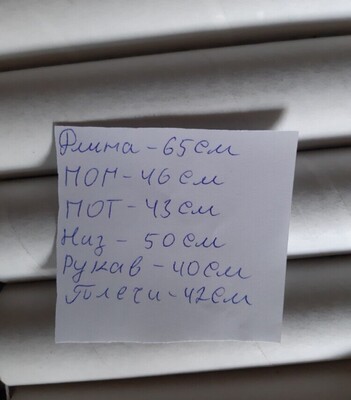 Длина - 65см
ПОП - 46 см
ПОТ - 43см
Низ - 50см
Рукав - 40см
Плечи - 42см